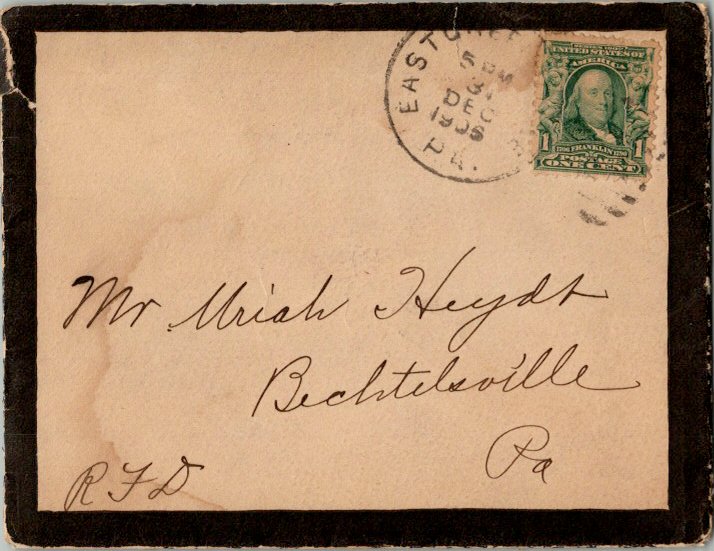 EAST GREE
5 PM
31
DEC
1906
PA.
UNITED STATES OF
AMERICA
1 FRANKLIN 1
POSTAGE
ONE CENT
Mr Uriah Heydt
Bechtelsville
Pa
R F D